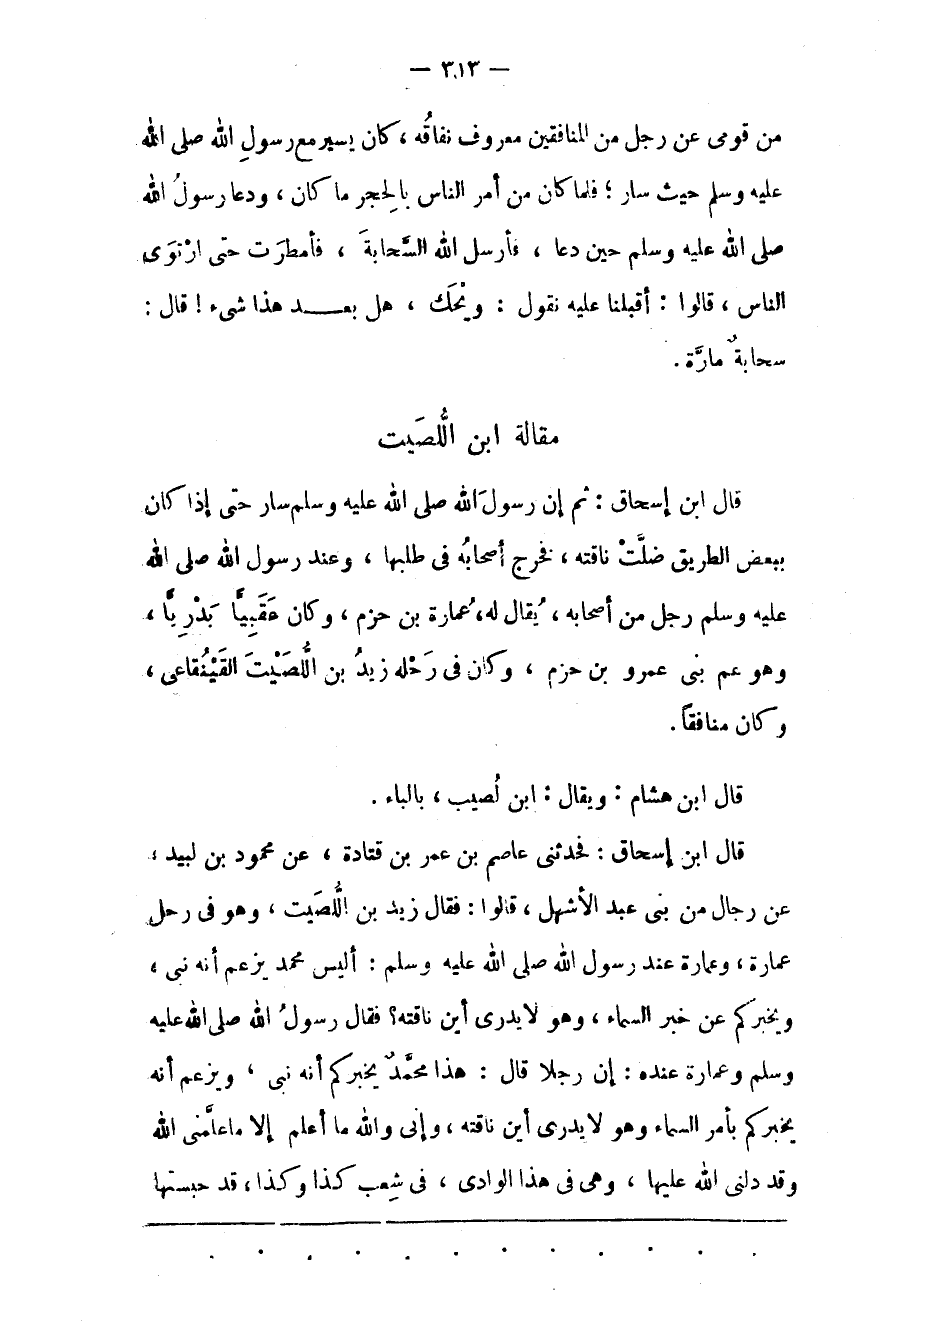 — ٣١٣ —
من قومى عن رجل من المنافقين معروف نفاقُه ، كان يسير مع رسولِ الله صلى الله
عليه وسلم حيث سار ؛ فلما كان من أمر الناس بالحِجر ما كان ، ودعا رسولُ الله
صلى الله عليه وسلم حين دعا ، فأرسل الله السَّحابةَ ، فأمطرَت حتى ارْتوَى
الناس ، قالوا : أقبلنا عليه نقول : ويْحَك ، هل بعد هذا شىء ! قال :
سحابةٌ مارَّة .
مقالة ابن اللُّصَيت
قال ابن إسحاق : ثم إن رسولَ الله صلى الله عليه وسلم سار حتى إذا كان
ببعض الطريق ضلَّتْ ناقته ، فخرج أصحابُه فى طلبها ، وعند رسول الله صلى الله
عليه وسلم رجل من أصحابه ، يُقال له، عُمارة بن حزم ، وكان عَقَبِيًّا بَدْرِيًّا ،
وهو عم بنى عمرو بن حزم ، وكان فى رَحْله زيدُ بن اللُّصَيْتَ القَيْنُقاعى ،
وكان منافقاً .
قال ابن هشام : ويقال : ابن لُصيب ، بالباء .
قال ابن إسحاق : فحدثنى عاصم بن عمر بن قتادة ، عن محمود بن لبيد ،
عن رجال من بنى عبد الأشهل ، قالوا : فقال زيد بن اللُّصَيت ، وهو فى رحل
عمارة ، وعمارة عند رسول الله صلى الله عليه وسلم : أليس محمد يزعم أنه نبى ،
ويخبركم عن خبر السماء ، وهو لا يدرى أين ناقته؟ فقال رسولُ الله صلى الله عليه
وسلم وعمارة عنده : إن رجلا قال : هذا محمَّدٌ يخبركم أنه نبى ، ويزعم أنه
يخبركم بأمر السماء وهو لا يدرى أين ناقته ، وإنى والله ما أعلم إلا ما علَّمنى الله
وقد دلنى الله عليها ، وهى فى هذا الوادى ، فى شِعب كذا وكذا ، قد حبستها